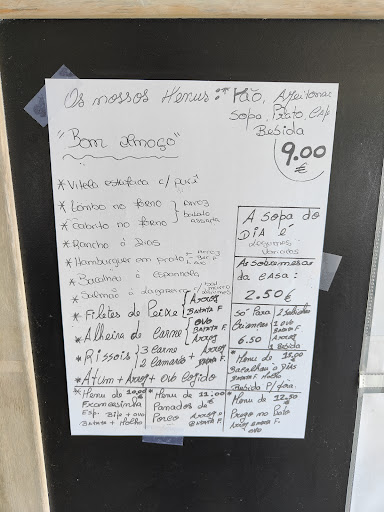 Os nossos Menus: Pão, Azeitonas
Sopa, Prato, Café
Bebida
9.00
€
"Bom almoço"
* Vitela estufada c/ puré
* Lombo no forno } arroz
* Cabrito no forno } batata assada
* Rancho à Dias
* Hamburguer em prato
* Bacalhau à Espanhola
* Salmão à lagareiro
* Filetes de Peixe { Arroz
Batata F.
* Alheira de Carne { ovo
Batata F
Arroz
* Rissois { 3 Carne + Arroz
2 Camarão + Batata F.
* Atum + Arroz + Ovo Cozido
A sopa do
DIA é
legumes
variados
As sobremesas
da casa:
2.50 €
Só Para
Crianças
6.50
2 Salsichas
1 ovo
Batata F
Arroz
1 Bebida
* Menu de 15.00
Bacalhau à Dias
Batata F. Molho
Bebida P/ fora.
* Menu de 10.00 €
Francesinha
Esp. Bife + ovo
Batata + Molho
* Menu de 11.00 €
Panados de
Porco Arroz e
Batata F.
* Menu de 12.50 €
Prego no Prato
Arroz Batata F.
ovo